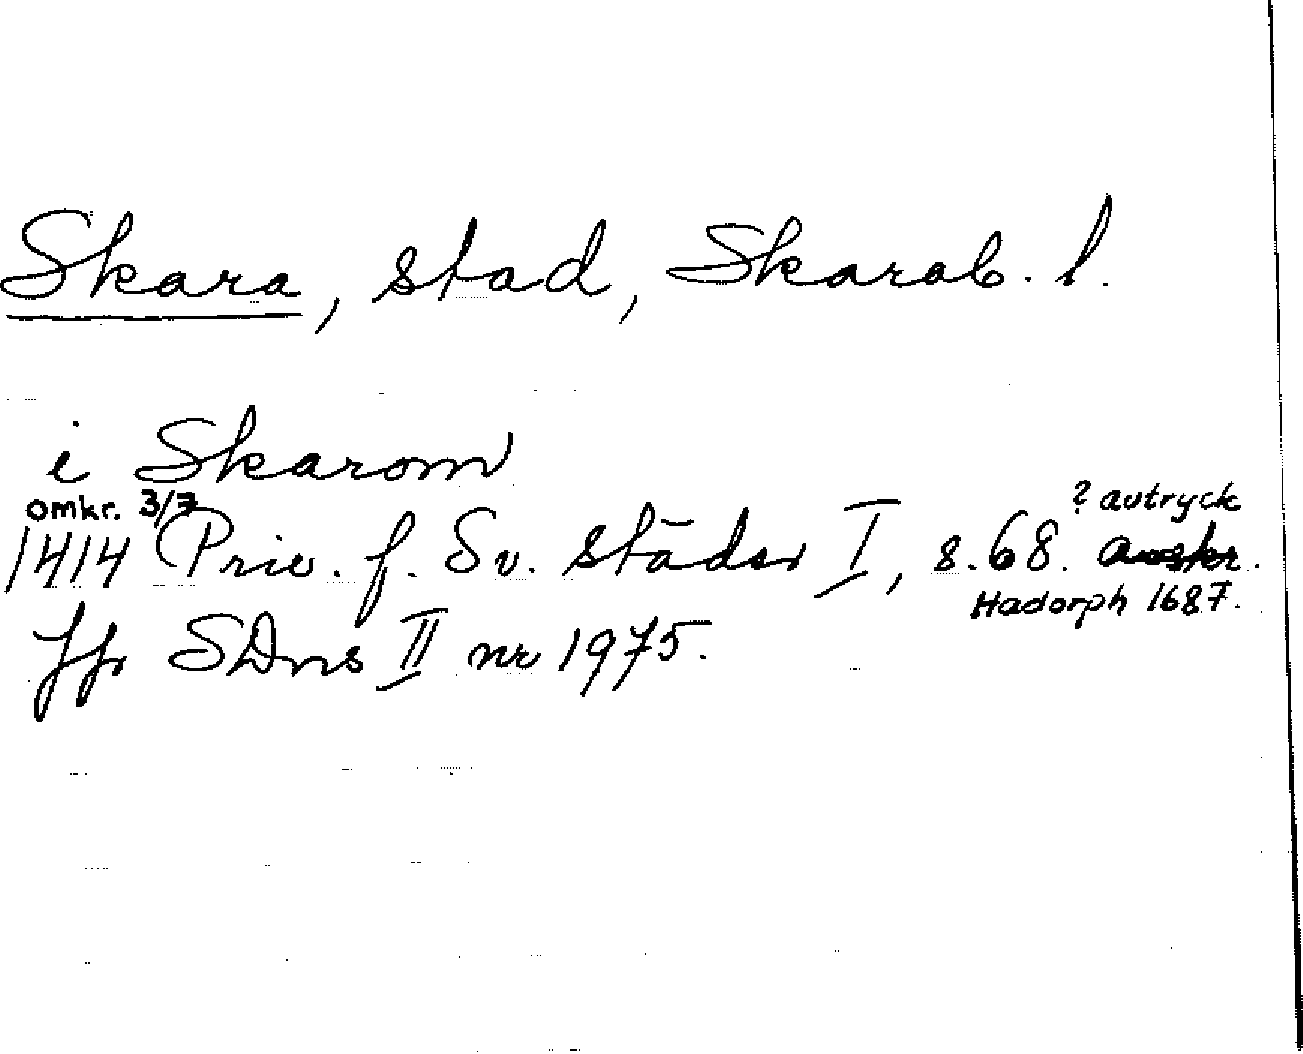 Skara, stad, Skarab. l.
i Skarom
omkr. 3/7
1414 Priv. f. Sv. städer I, s. 68. ? avtryck
Hadorph 1687.
Jfr SDns II nr 1975.